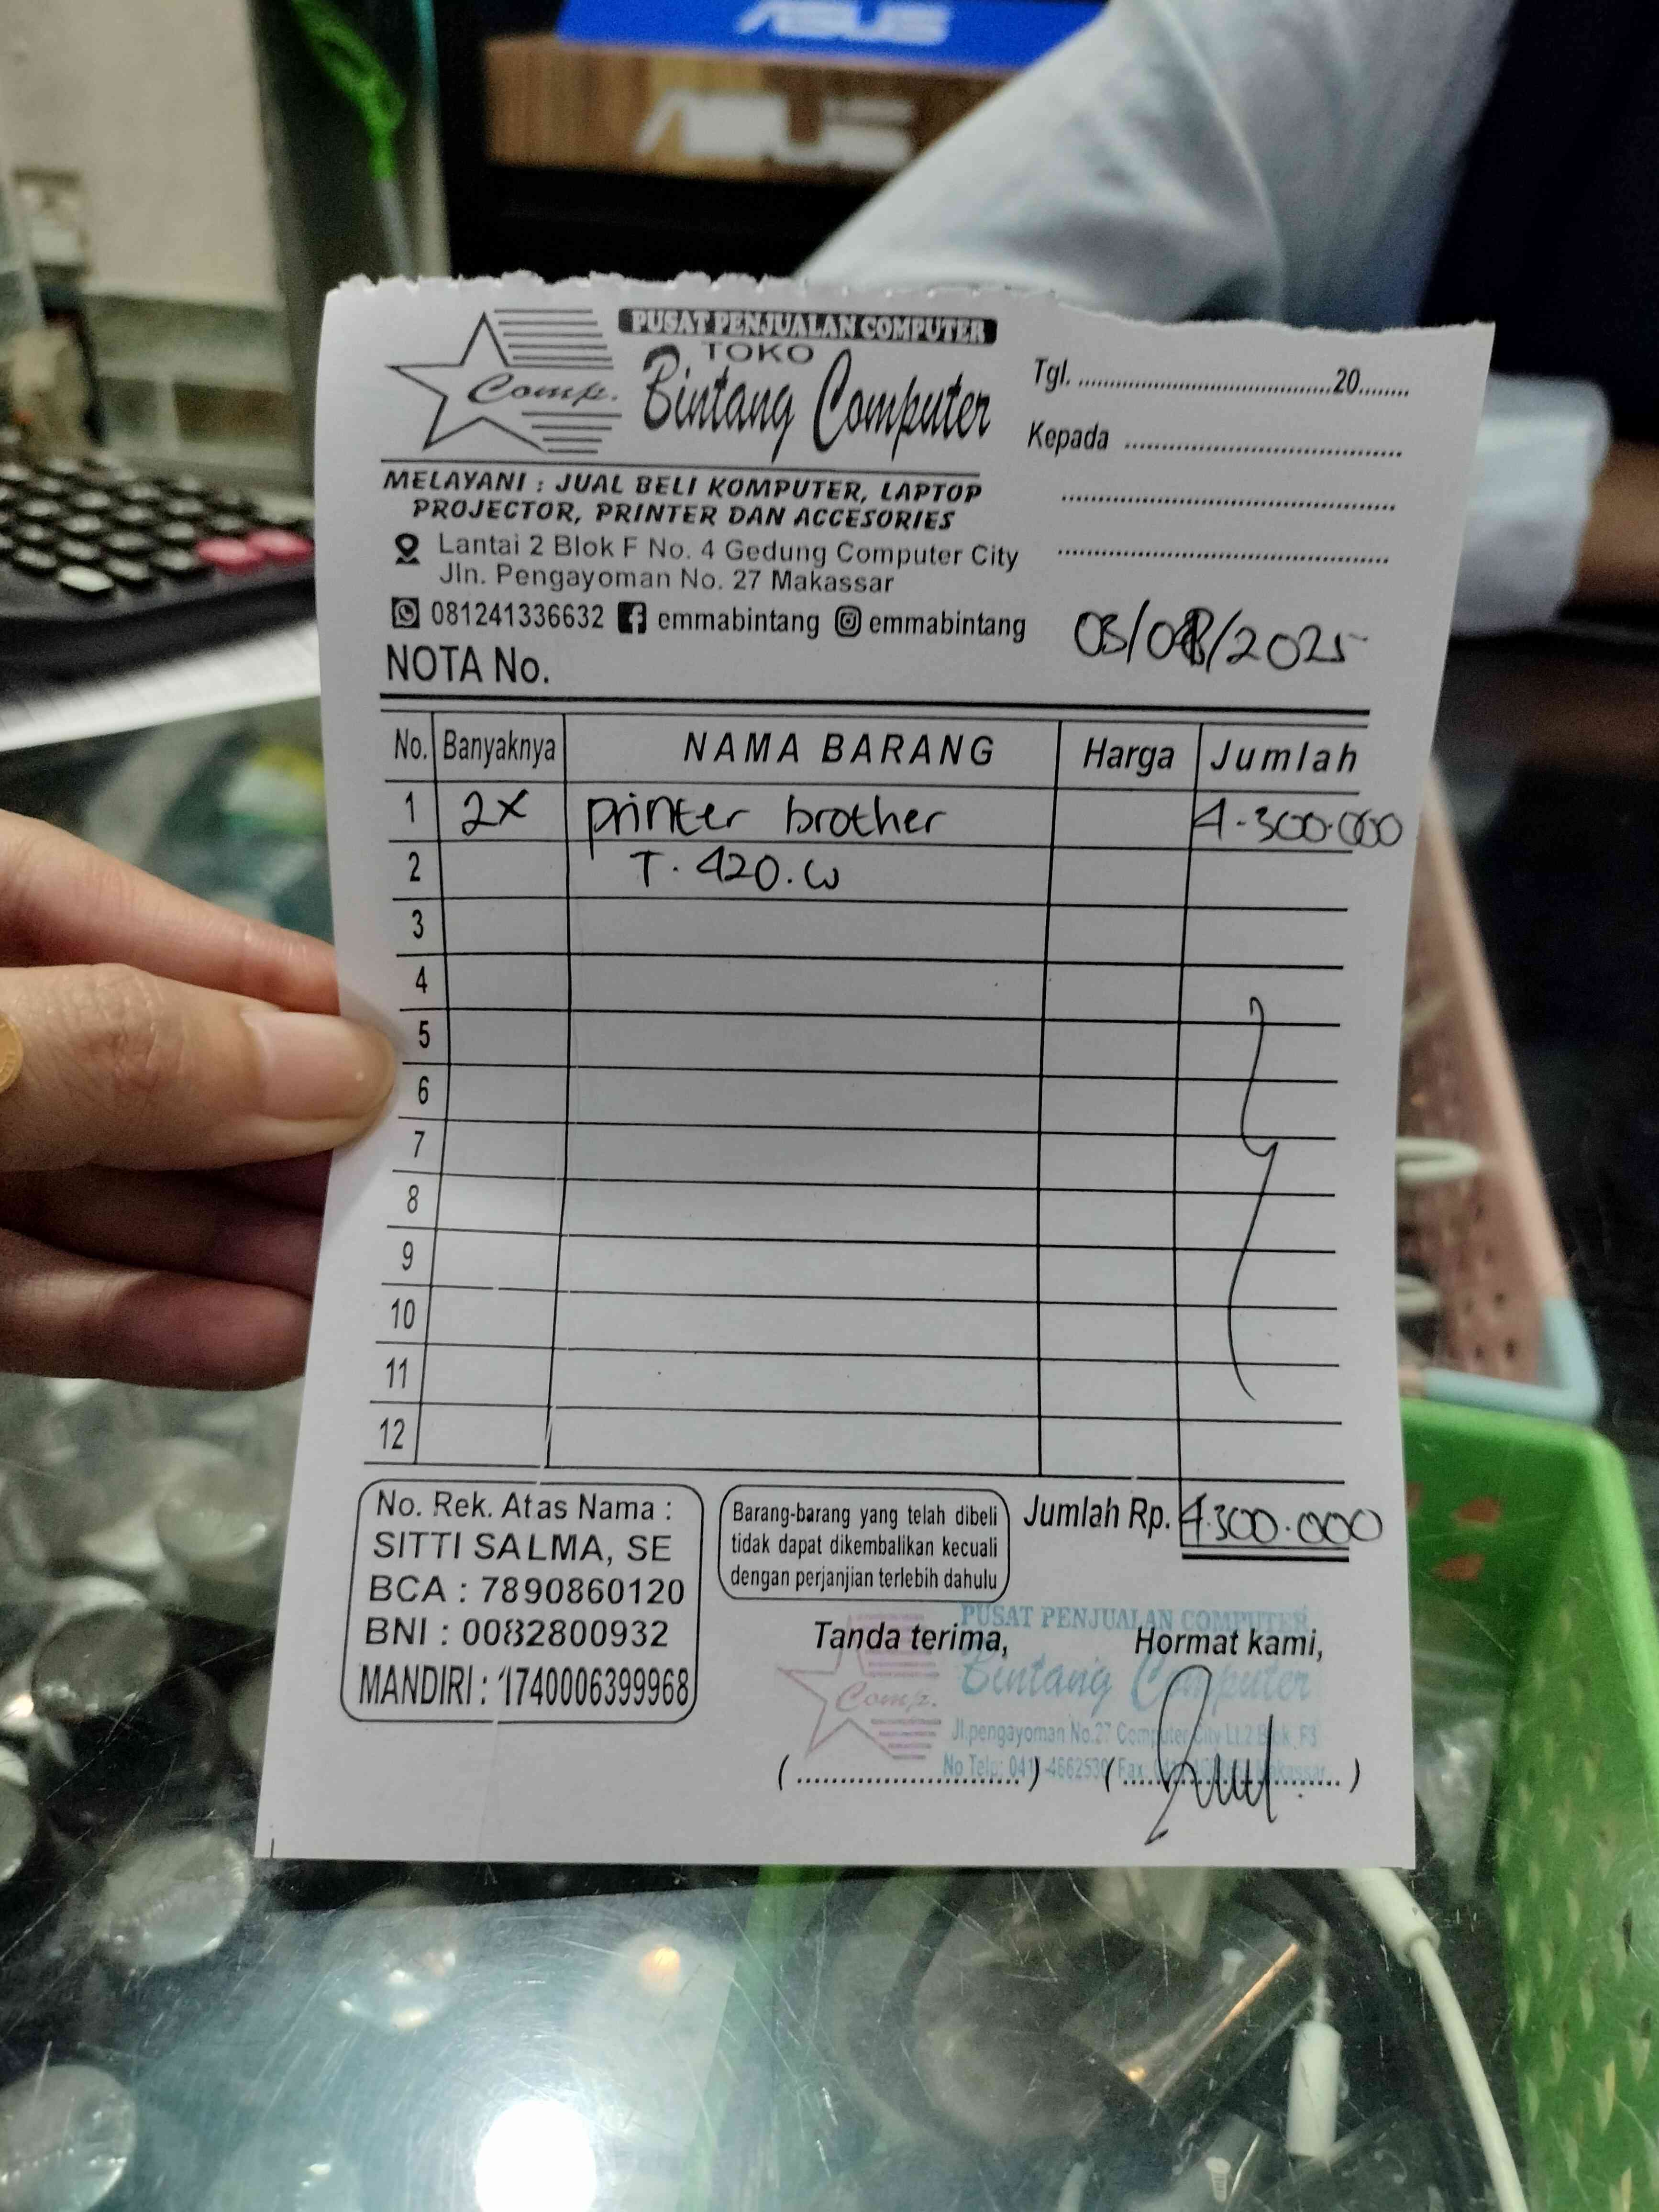 ASUS
ASUS
PUSAT PENJUALAN COMPUTER
TOKO
Comp.
Bintang Computer
MELAYANI : JUAL BELI KOMPUTER, LAPTOP
PROJECTOR, PRINTER DAN ACCESORIES
Lantai 2 Blok F No. 4 Gedung Computer City
Jln. Pengayoman No. 27 Makassar
081241336632 emmabintang emmabintang
Tgl. ........................................20........
Kepada ........................................
NOTA No.
/2025
No. Banyaknya NAMA BARANG Harga Jumlah
1 2x printer brother 4.300.000
2 T.420.W
3
4
5
6
7
8
9
10
11
12
No. Rek. Atas Nama :
SITTI SALMA, SE
BCA : 7890860120
BNI : 0082800932
MANDIRI : 1740006399968
Barang-barang yang telah dibeli
tidak dapat dikembalikan kecuali
dengan perjanjian terlebih dahulu
Jumlah Rp. 4.300.000
Tanda terima,
Hormat kami,
PUSAT PENJUALAN COMPUTER
Comp.
Bintang Computer
Jl.pengayoman No.27 Computer City Lt.2 Blok F3
No Telp: Fax. Makassar
(............................) (............................)